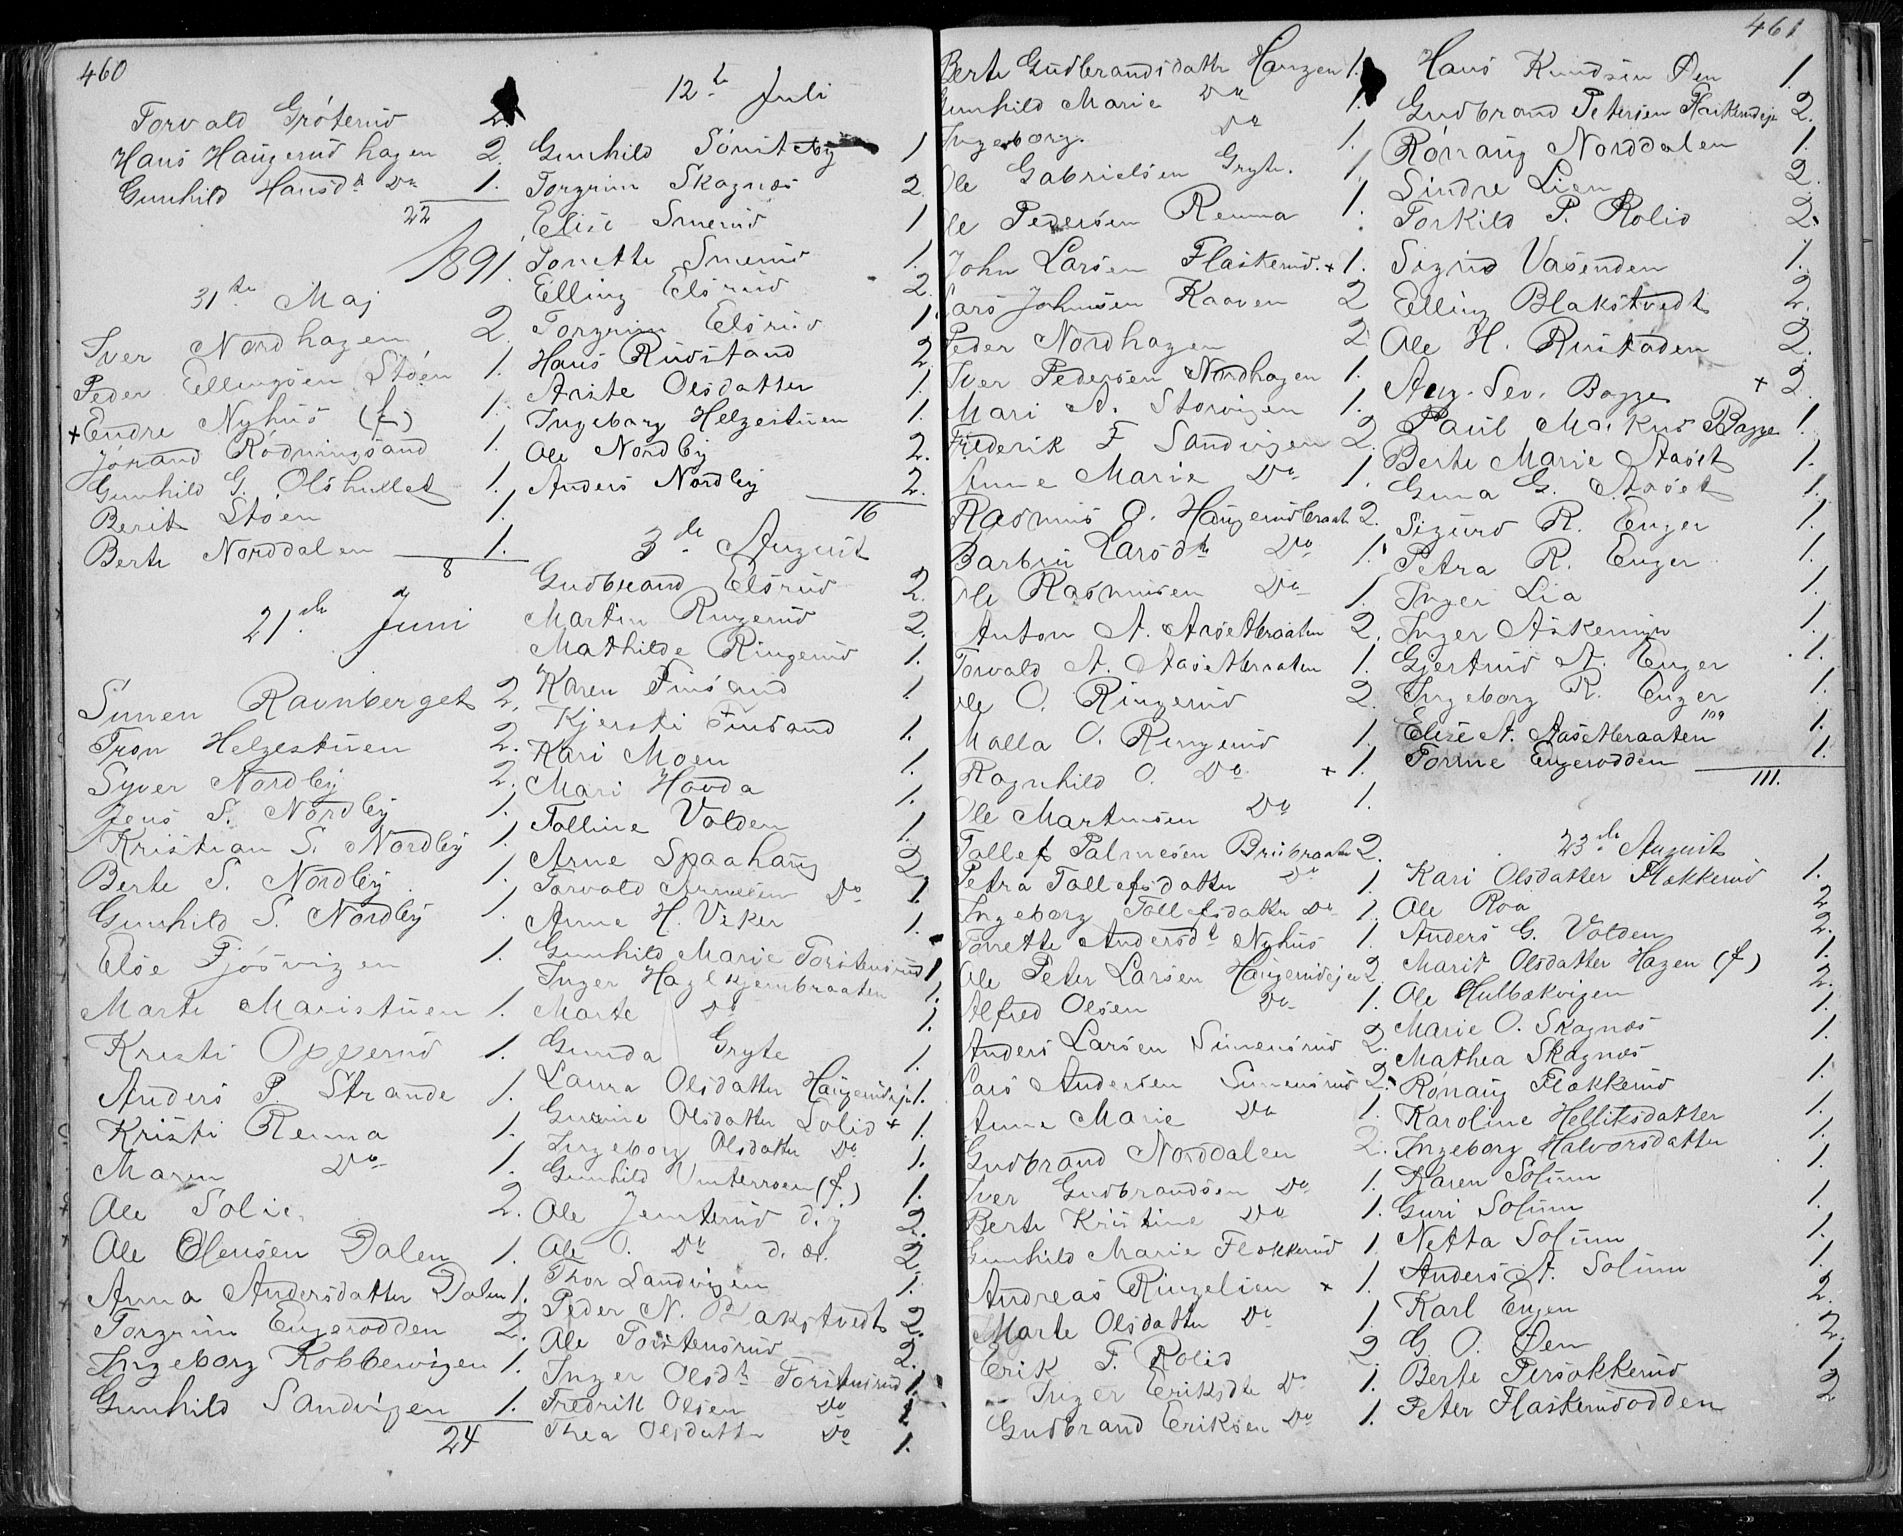 460
Torvald Gróterud 2.
Hans Haugerud hagen 2.
Gunhild Hansdt Do 1.
22
1891.
31te Maj
Iver Nordhagen 2.
Peder Ellingsen Stóen 1.
+ Endre Nyhus (f.) 1.
Jórand Ródningsand 1.
Gunhild G. Olshullet 1.
Berit Stóen 1.
Berte Norddalen 1.
8
21de Juni
Simen Ravnberget 2.
Tron Helgestuen 2.
Syver Nordby 2.
Jens S. Nordby 1.
Kristian S. Nordby 1.
Berte S. Nordby 1.
Gunhild S. Nordby 1.
Else Fjósvigen 1.
Marte Maristuen 1.
Kristi Opperud 1.
Anders P. Strande 1.
Kristi Renna 1.
Maren Do 1.
Ole Solie 2.
Ole Olensen Dalen 1.
Anna Andersdatter Dalen 1.
Torgrim Engerodden 2.
Ingeborg Kobbervigen 1.
Gunhild Sandvigen 1.
24
12te Juli
Gunhild Sónsteby 1
Torgrim Skagnæs 2
Elise Smerud 1
Tonette Smerud 1.
Elling Elsrud 2.
Torgrim Elsrud 1.
Hans Rudstand 2.
Arste Olsdatter 1.
Ingeborg Helgestuen 1.
Ole Nordby 2.
Anders Nordby 2.
16
3de August
Gudbrand Elsrud 2.
Martin Ringerud 2.
Mathilde Ringerud 1.
Karen Finsand 1
Kjersti Finsand 1.
Kari Moen 1.
Mari Hovda 1.
Talline Volden 1.
Arne Spaahaug 2.
Torvald Arnesen Do 1.
Anne H. Viker 1.
Gunhild Marie Torstensrud 1
Inger Haglkjernbraaten 1.
Marte Do 1.
Gunda Gryte 1.
Laura Olsdatter Haugerudeje 1.
Gurine Olsdatter Solid + 1.
Ingeborg Olsdatter Do 1.
Gunhild Vinterroen (f.) 1.
Ole Jemterud d. y 2.
Ole O. Do d. æ. 2.
Thor Sandvigen 1.
Peder N. Blakstvedt 2.
Ole Torstensrud 2.
Inger Olsdt Torstensrud 1.
Fredrik Olsen Do 1
Thea Olsdatter Do 1.
461
Berte Gudbrandsdatter Haugen 1.
Gunhild Marie Do 1.
Ingeborg Do 1.
Ole Gabrielsen Gryte. 1.
Ole Pedersen Renna 1.
John Larsen Flaskerud. + 1.
Lars Johnsen Kaaven 2
Peder Nordhagen 2
Iver Pedersen Nordhagen 1.
Mari A. Storvigen 1.
Frederik F Sandvigen 2.
Anne Marie Do 1.
Rasmus O. Haugerudbraat. 2.
Barbru Larsdt Do 1.
Ole Rasmusen Do 1.
Anton A. Aasetbraaten 2.
Torvald A. Aasetbraaten 1.
Ole O. Ringerud 2.
Malla O. Ringerud 1.
Ragnhild O. Do + 1.
Ole Martinsen Do 1.
Tollef Palmesen Brubraaten 2.
Petra Tollefsdatter Do 1.
Ingeborg Tollefsdatter Do 1.
Tonette Andersdt Nyhus 1.
Ole Peter Larsen Haugerudeje 2.
Alfred Olsen Do 1.
Anders Larsen Simensrud 2.
Lars Andersen Simensrud 2.
Anne Marie Do 1.
Gudbrand Norddalen 2.
Iver Gudbrandsen Do 1.
Berte Kristine Do 1.
Gunhild Marie Flækkerud 1.
Andreas Ringelien + 1.
Marte Olsdatter Do 1.
Erik T. Rolid 2
Inger Eriksdt Do 1.
Gudbrand Eriksen Do 1.
Hans Knudsen Øen 1.
Gudbrand Petersen Flaskerudeje 2.
Rónaug Norddalen 1.
Sindre Lien 2.
Torkild P. Rolid 2.
Sigrid Vasenden 1.
Elling Blakstvedt 2.
Ole H. Rustaden 2.
Aug. Sev. Bagge + 2.
Paul Markus Bagge 1.
Berte Marie Aaset 1.
Guna G. Aaset 1.
Sigurd R. Enger 1.
Petra R. Enger 1.
Inger Lia 1.
Inger Askerud 1.
Gjertrud A. Enger 1.
Ingeborg R. Enger 1.
109
Elise A. Aasetbraaten 1.
Tomine Engerodden 1.
111.
23de August
Kari Olsdatter Flækkerud 1.
Ole Roa 2
Anders G. Volden 2.
Marit Olsdatter Hagen (f.) 1.
Ole Hulbækvigen 2.
Marie O. Skagnæs 1.
Mathea Skagnæs 1.
Rónaug Flækkerud 1.
Karoline Helliksdatter 1.
Ingeborg Halvorsdatter 1.
Karen Solum 1.
Guri Solum 1.
Netta Solum 1.
Anders A. Solum 1.
Karl Engen 2.
G. O. Øen 2.
Berte Persokkerud 1
Peter Flaskerudodden 2